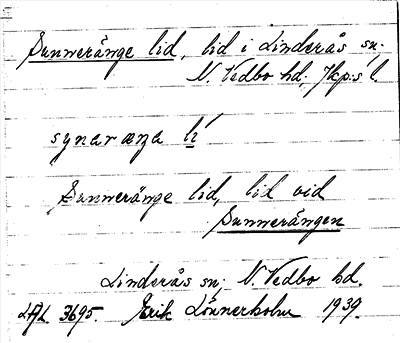 Sunneränge lid, lid i Linderås sn;
N. Vedbo hd; Jkp:s l.
synaræŋa li
Sunneränge lid, lid vid
Sunnerängen
Linderås sn; N. Vedbo hd.
3695. Erik Lönnerholm 1939.